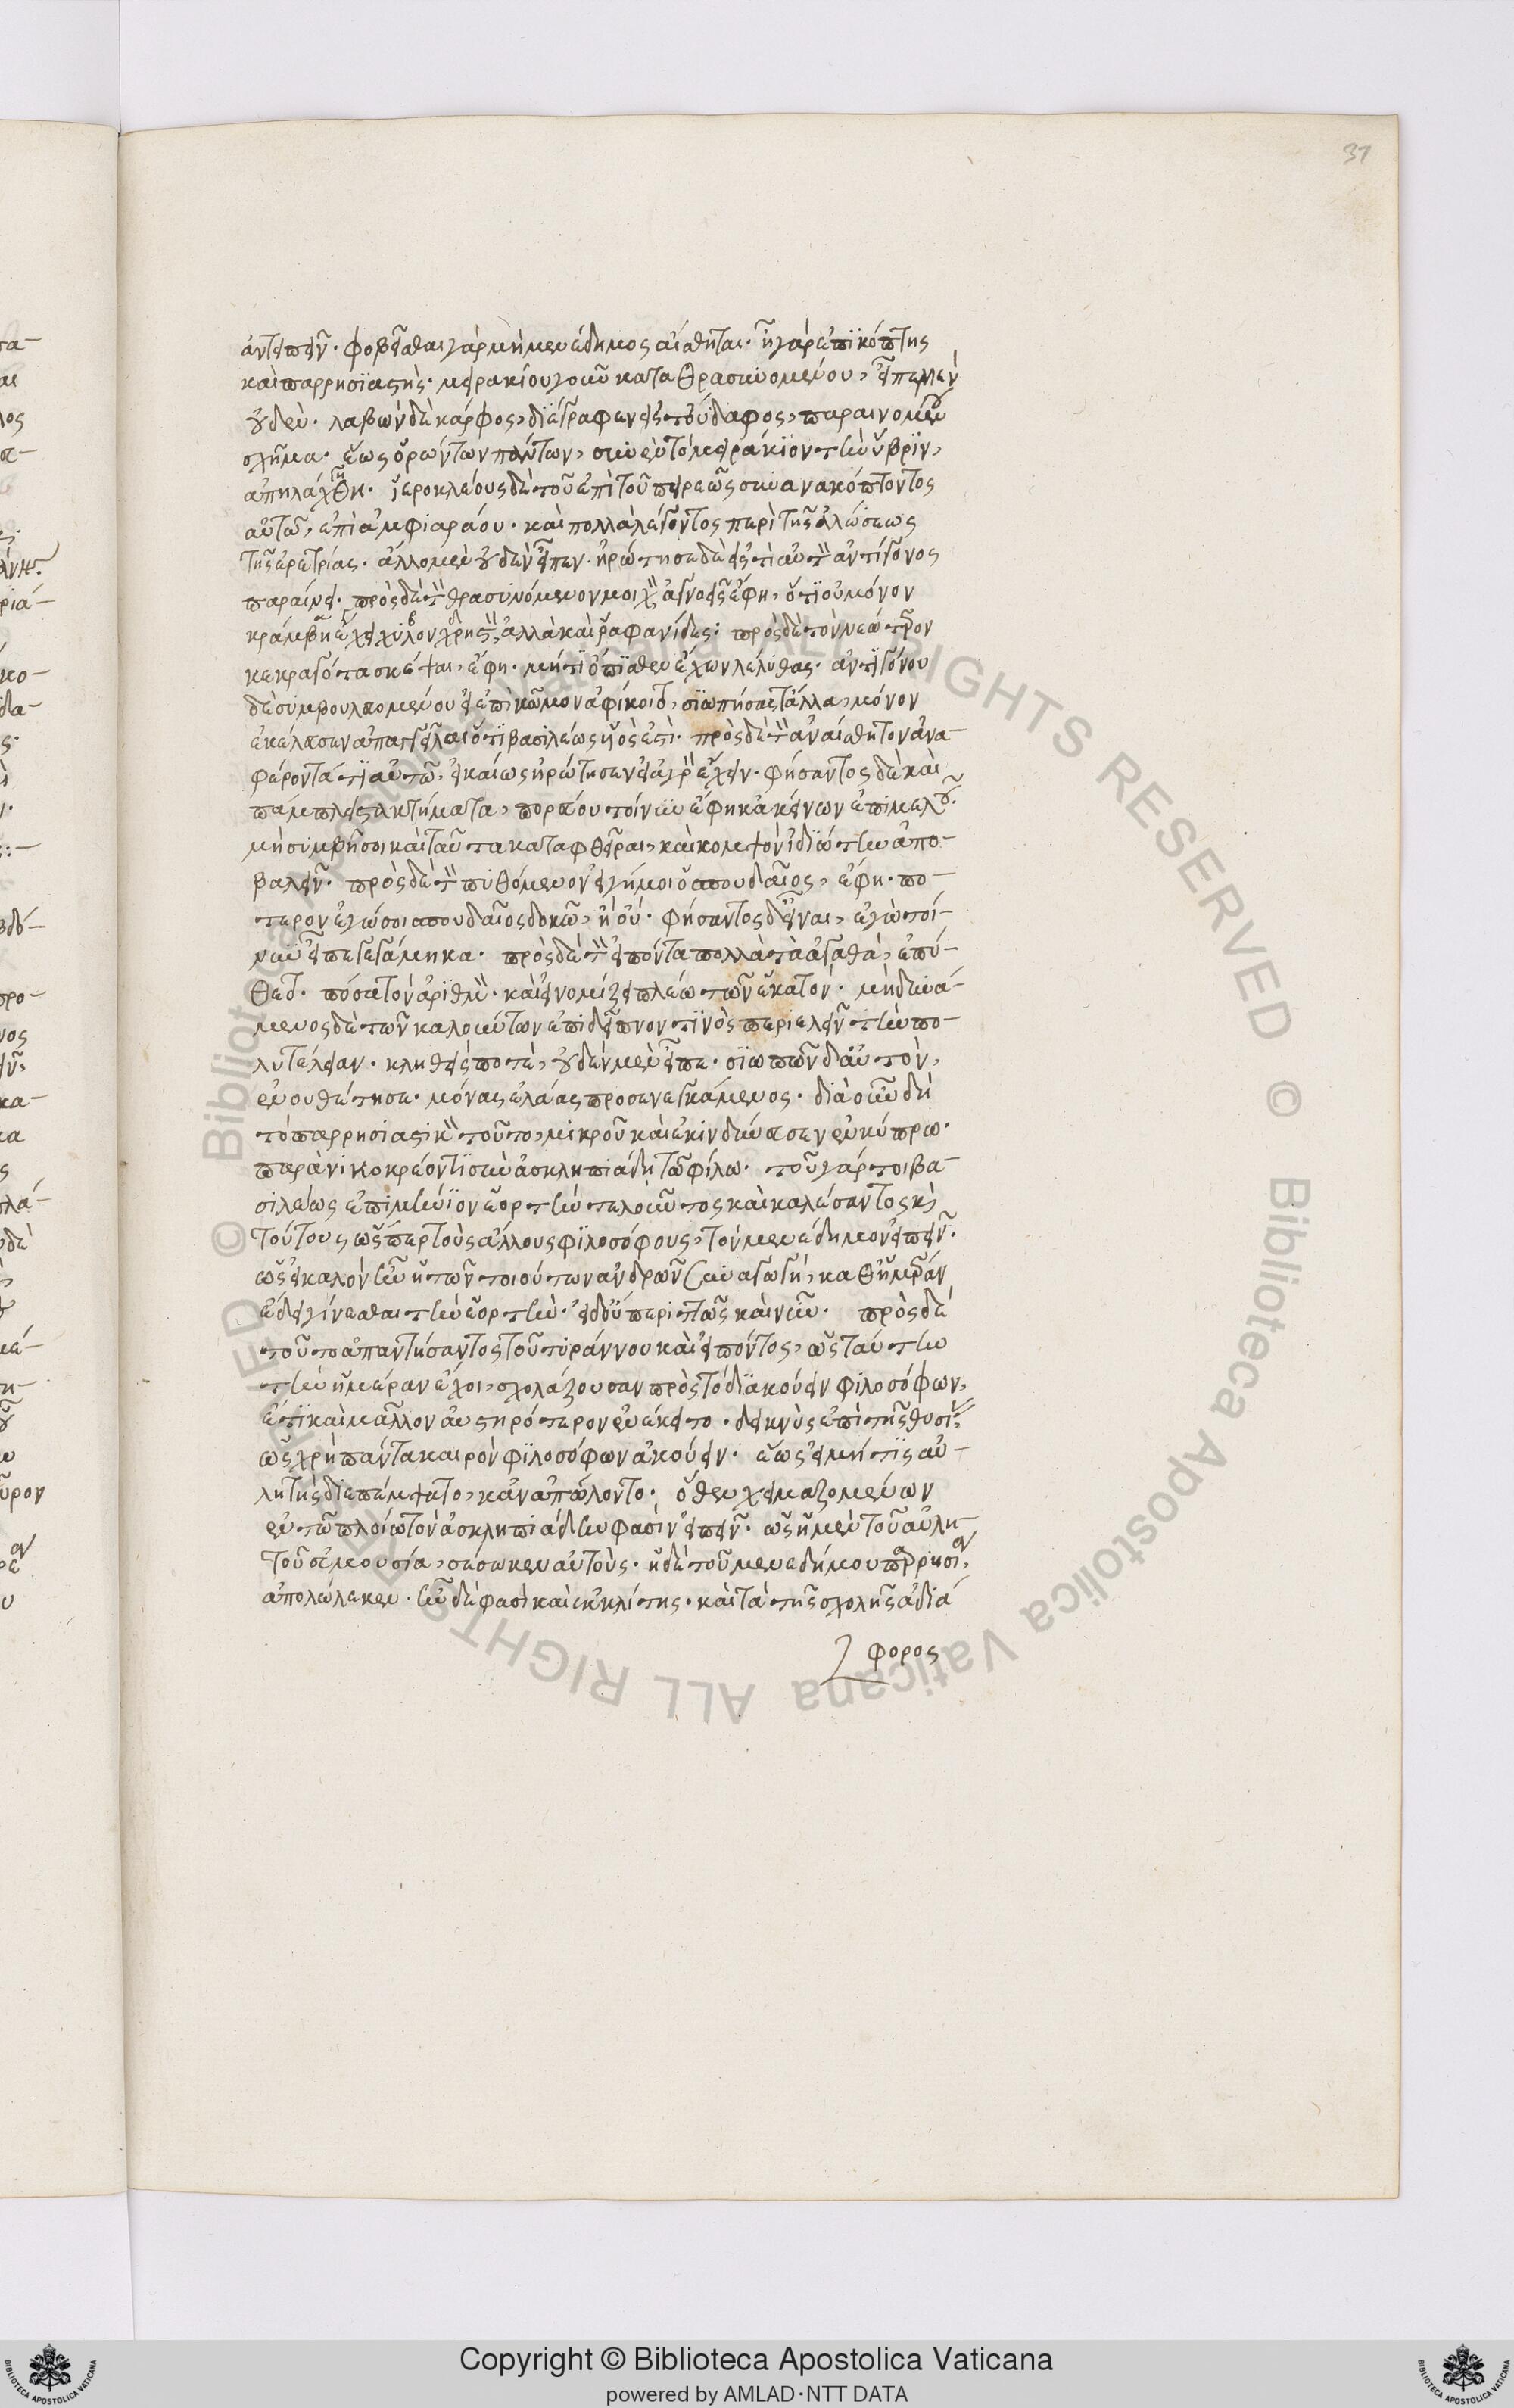 31
ἀντειπεῖν· φοβεῖσθαι γὰρ μὴ μενέδημος αἴσθηται· ἦν γὰρ ἐπικόπτης
καὶ παρρησιαστής· μειρακίου γοῦν καταθρασυνομένου, εἶπε μὲν
οὐδέν· λαβὼν δὲ κάρφος, διέγραφεν εἰς τοὔδαφος, περαινομένου
σχῆμα· ἕως ὁρώντων πάντων, συνεὶς τὸ μειράκιον τὴν ὕβριν,
ἀπηλλάγη. ἱεροκλέους δὲ τοῦ ἐπὶ τοῦ πειρεῶς συνανακόπτοντος
αὐτῶ, ἐπὶ ἀμφιαράου· καὶ πολλὰ λέγοντος περὶ τῆς ἁλώσεως
τῆς ἐρετρίας· ἄλλο μὲν οὐδὲν εἶπεν· ἠρώτησε δὲ εἰς τί αὐτὸν ἀντίγονος
περαίνει· πρὸς δὲ τὸν θρασυνόμενον μοιχὸν, ἀγνοεῖς ἔφη, ὅτι οὐ μόνον
κράμβη ἔχει χυλὸν χρηστὸν, ἀλλὰ καὶ ῥαφανίδες: πρὸς δὲ τὸν νεώτερον
κεκραγότα σκέψαι, ἔφη· μή τι ὄπισθεν ἔχων λέληθας· ἀντιγόνου
δὲ συμβουλευομένου εἰ ἐπὶ κῶμον ἀφίκοιτο, σιωπήσας τἄλλα, μόνον
ἐκέλευσεν ἀπαγγεῖλαι ὅτι βασιλέως υἱός ἐστι· πρὸς δὲ τὸν ἀναίσθητον ἀνα-
φέροντά τι αὐτῶ, εἰκαίως ἠρώτησεν εἰ ἀγρὸν ἔχειν· φήσαντος δὲ καὶ
πάμπλειστα κτήματα, πορεύου τοίνυν ἔφη κἀκείνων ἐπιμελοῦ·
μὴ συμβῇ σοι καὶ ταῦτα καταφθεῖραι, καὶ κομψὸν ἰδιώτην ἀπο-
βαλεῖν· πρὸς δὲ τὸν πυθόμενον εἰ γήμοι ὁ σπουδαῖος, ἔφη· πό-
τερον ἐγώ σοι σπουδαῖος δοκῶ, ἢ οὔ· φήσαντος δ' εἶναι, ἐγὼ τοί-
νυν εἶπε γεγάμηκα· πρὸς δὲ τὸν εἰπόντα πολλὰ τὰ ἀγαθὰ, ἐπύ-
θετο· πόσα τὸν ἀριθμὸν· καὶ εἰ νομίζει πλείω τῶν ἑκατόν· μὴ δυνά-
μενος δὲ τῶν καλούντων ἐπὶ δεῖπνόν τινος περιελεῖν τὴν πο-
λυτέλειαν· κληθείς ποτε, οὐδὲν μὲν εἶπε· σιωπῶν δ' αὐτὸν,
ἐνουθέτησε· μόνας ἐλάας προσενεγκάμενος· διὰ οὖν δὴ
τὸ παρρησιαστικὸν τοῦτο, μικροῦ καὶ ἐκινδύνευσεν ἐν κύπρω·
παρὰ νικοκρέοντι σὺν ἀσκληπιάδη τῶ φίλω· τοῦ γάρ τοι βα-
σιλέως ἐπιμήνιον ἑορτὴν τελοῦντος καὶ καλέσαντος καὶ
τούτους ὥσπερ τοὺς ἄλλους φιλοσόφους, τὸν μενέδημον εἰπεῖν·
ὡς εἰ καλὸν ἦν ἡ τῶν τοιούτων ἀνδρῶν συναγωγή, καθ' ἡμέραν
ἔδει γίνεσθαι τὴν ἑορτὴν· εἰ δ' οὔ περιττῶς καὶ νῦν· πρὸς δὲ
τοῦτο ἀπαντήσαντος τοῦ τυράννου καὶ εἰπόντος, ὡς ταύτην
τὴν ἡμέραν ἔχοι, σχολάζουσαν πρὸς τὸ διακούειν φιλοσόφων,
ἔτι καὶ μᾶλλον αὐστηρότερον ἐνέκειτο· δεικνὺς ἐπὶ τῆς θυσίας
ὡς χρὴ πάντα καιρὸν φιλοσόφων ἀκούειν· ἕως εἰ μή τις αὐ-
λητὴς διεπέμψατο, κἂν ἀπώλοντο· ὅθεν χειμαζομένων
ἐν τῶ πλοίω τὸν ἀσκληπιάδην φασὶν εἰπεῖν· ὡς ἡ μὲν τοῦ αὐλη-
τοῦ εὐμουσία, σέσωκεν αὐτοὺς· ἡ δὲ τοῦ μενεδήμου παρρησία,
ἀπολώλεκεν· ἦν δὲ φασὶ καὶ ἐκκλίτης· καὶ τὰ τῆς σχολῆς ἀδιά
φορος